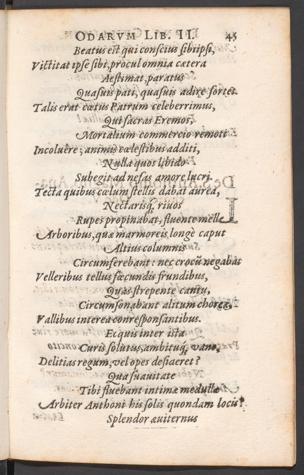 ODARVM LIB. II. 45
Beatus est qui conscius sibi ipsi,
Victitat ipse sibi, procul omnia catera
Aestimat, paratus
Quasuis pati, quasuis adire sortes.
Talis erat cœtus Patrum celeberrimus,
Qui sacras Eremos,
Mortalium commercio remoti
Incoluêre; animis cœlestibus additi,
Nulla quos libido
Subegit ad nefas amore lucri.
Tecta quibus cœlum stellis dabat aurea,
Nectarisq; riuos
Rupes propinabat, fluente melle
Arboribus, qua marmoreis longè caput
Altius columnis
Circumferebant: nec crocū negabat
Velleribus tellus fœcundis frundibus,
Quas strepente cantu,
Circumsonabant alitum chorea,
Vallibus interea corresponsantibus.
Ecquis inter ista
Curis solutus, ambituq; vano,
Delitias regum, vel opes desiaeret?
Qua suauitate
Tibi fluebant intima medulla
Arbiter Anthoni his solis quondam loci?
Splendor auiternus